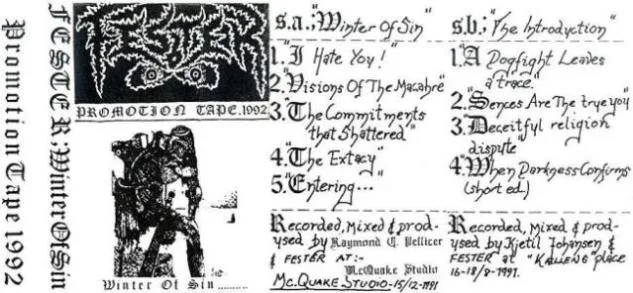 Promotion Tape 1992
FESTER; Winter Of Sin
FESTER
PROMOTION TAPE. 1992
Winter Of Sin.........
s.a.; "Winter Of Sin"
1. "I Hate You!"
2. "Visions Of The Macabre"
3. "The Commitments
that Shattered"
4. "The Extacy"
5. "Entering..."
Recorded, Mixed & prod-
ysed by Raymond C. Pellicer
& FESTER AT:-
McQuake Studio
Mc.QUAKE STUDIO-15/12-1991
s.b.; "The Introduction"
1. "A Dogfight Leaves
a trace."
2. "Sences Are The true you"
3. "Deceitful religion
dispute"
4. "When Darkness Confirms
(short ed.)
Recorded, Mixed & prod-
ysed by Kjetil Johansen &
FESTER at "KALLENS" place
16-18/8-1991.